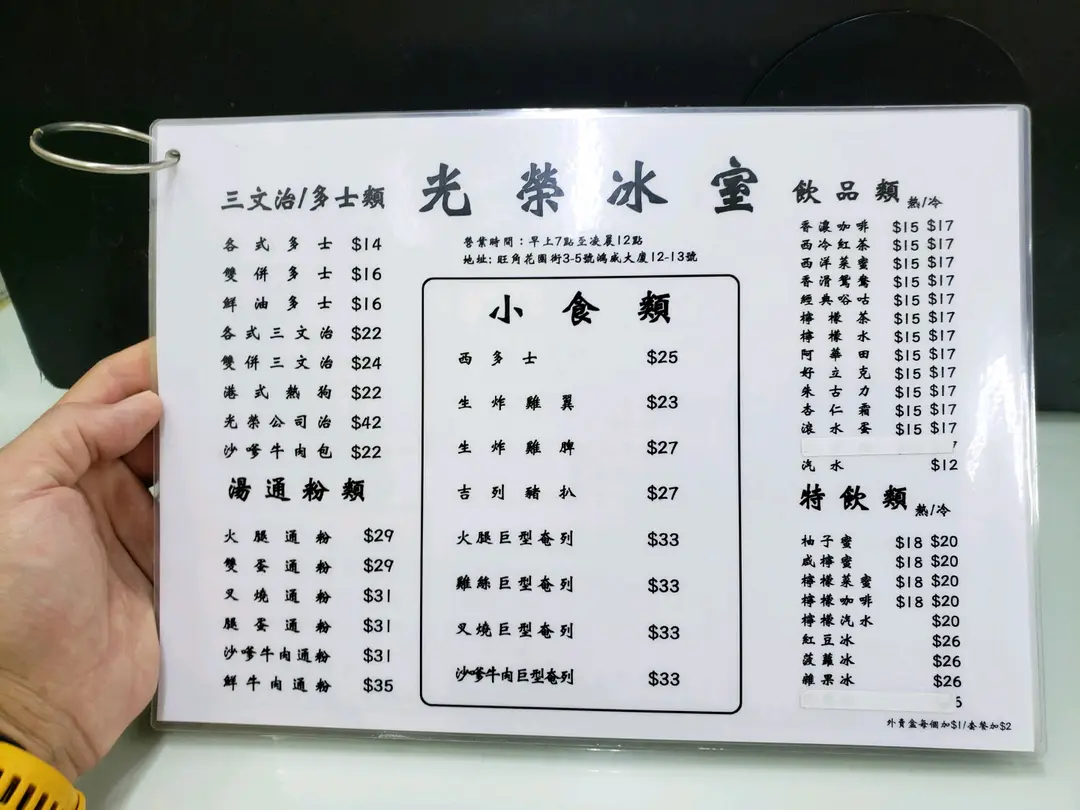 光榮冰室
營業時間：早上7點至凌晨12點
地址: 旺角花園街3-5號鴻威大廈12-13號
三文治/多士類
各式多士 $14
雙併多士 $16
鮮油多士 $16
各式三文治 $22
雙併三文治 $24
港式熱狗 $22
光榮公司治 $42
沙嗲牛肉包 $22
湯通粉類
火腿通粉 $29
雙蛋通粉 $29
叉燒通粉 $31
腿蛋通粉 $31
沙嗲牛肉通粉 $31
鮮牛肉通粉 $35
小食類
西多士 $25
生炸雞翼 $23
生炸雞脾 $27
吉列豬扒 $27
火腿巨型奄列 $33
雞絲巨型奄列 $33
叉燒巨型奄列 $33
沙嗲牛肉巨型奄列 $33
飲品類 熱/冷
香濃咖啡 $15 $17
西冷紅茶 $15 $17
西洋菜蜜 $15 $17
香滑鴛鴦 $15 $17
經典唂咕 $15 $17
檸檬茶 $15 $17
檸檬水 $15 $17
阿華田 $15 $17
好立克 $15 $17
朱古力 $15 $17
杏仁霜 $15 $17
滾水蛋 $15 $17
汽水 $12
特飲類 熱/冷
柚子蜜 $18 $20
咸檸蜜 $18 $20
檸檬菜蜜 $18 $20
檸檬咖啡 $18 $20
檸檬汽水 $20
紅豆冰 $26
菠蘿冰 $26
雜果冰 $26
外賣盒每個加$1/套餐加$2